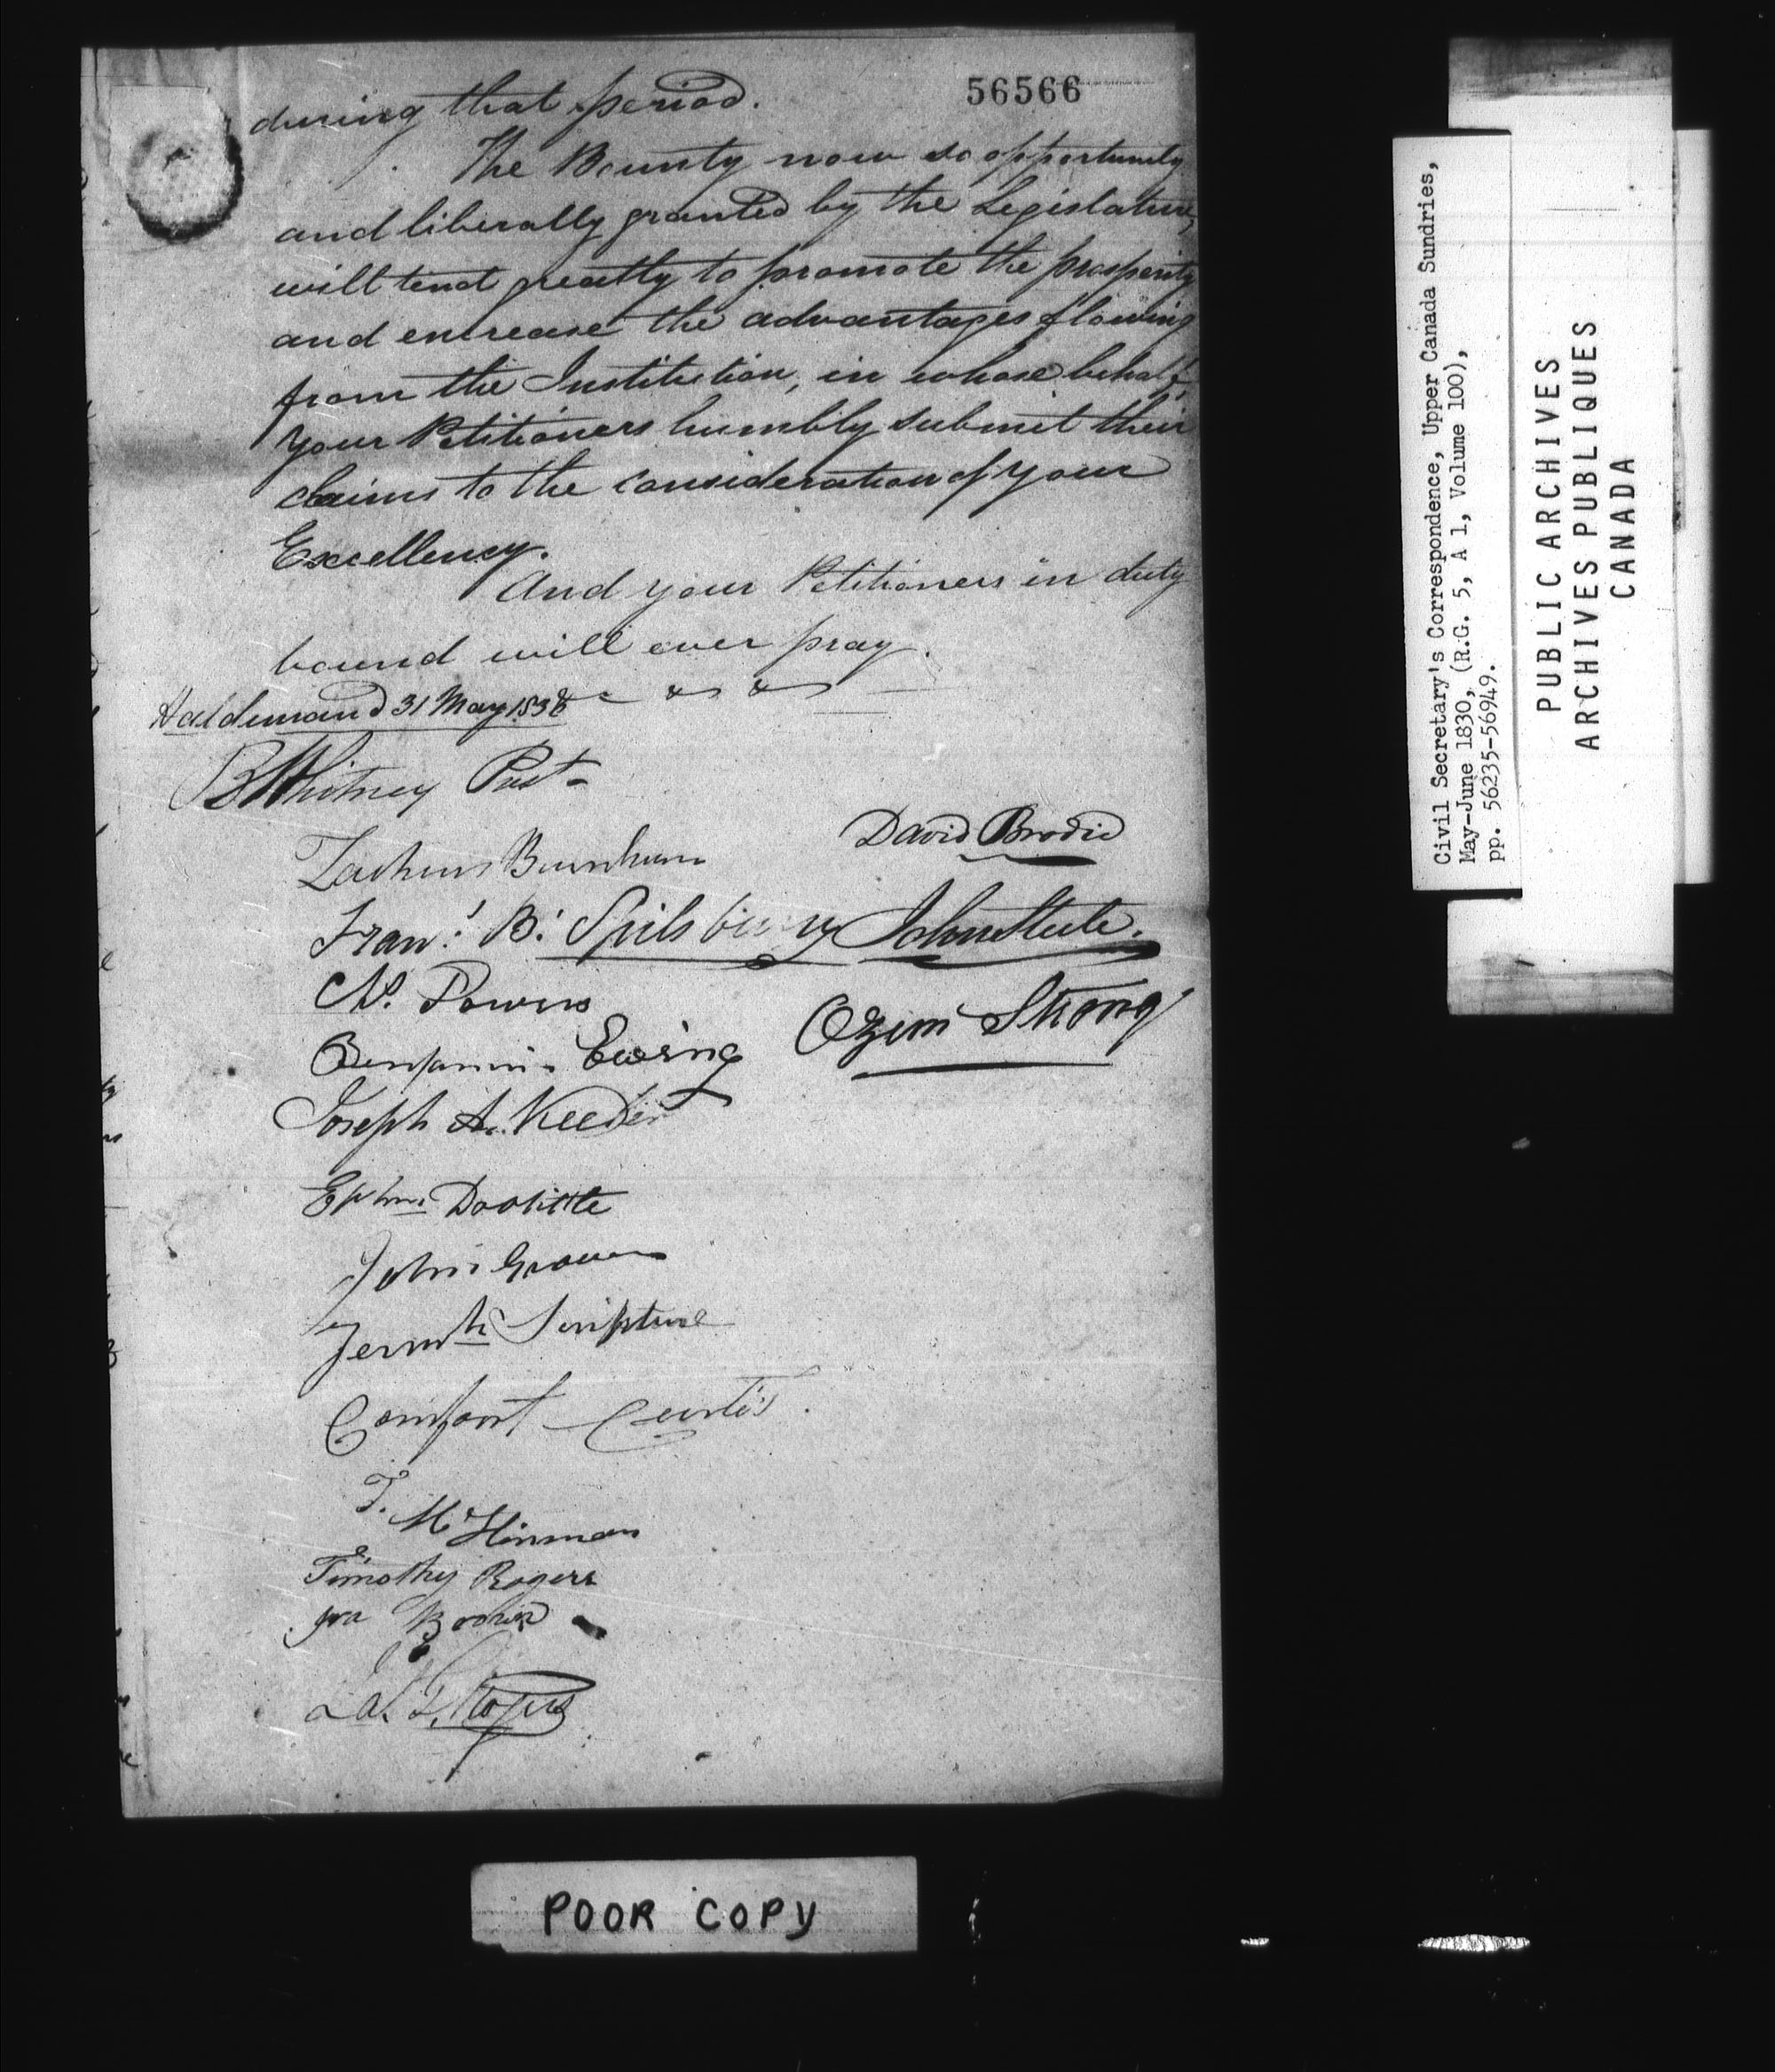 56566
during that period.
The Bounty now so opportunely
and liberally granted by the Legislature,
will tend greatly to promote the prosperity
and encrease the advantages flowing
from the Institution, in whose behalf
your Petitioners humbly submit their
claims to the consideration of your
Excellency.
And your Petitioners in duty
bound will ever pray.
Haldimand 31 May 183
B Whitney Prest
Zacheus Burnham
David Brodie
Fran.s B. Spilsbury
John Steele.
N. Powers
Benjamin Ewing
Ozem Strong
Joseph A. Keeler
Ephm Doolittle
John Grover
Jermh Scripture
Comfort Curtis.
T. M Hinman
Timothy Rogers
Rogers
Civil Secretary's Correspondence, Upper Canada Sundries,
May-June 1830, (R.G. 5, A 1, Volume 100),
pp. 56235-56949.
PUBLIC ARCHIVES
ARCHIVES PUBLIQUES
CANADA
POOR COPY